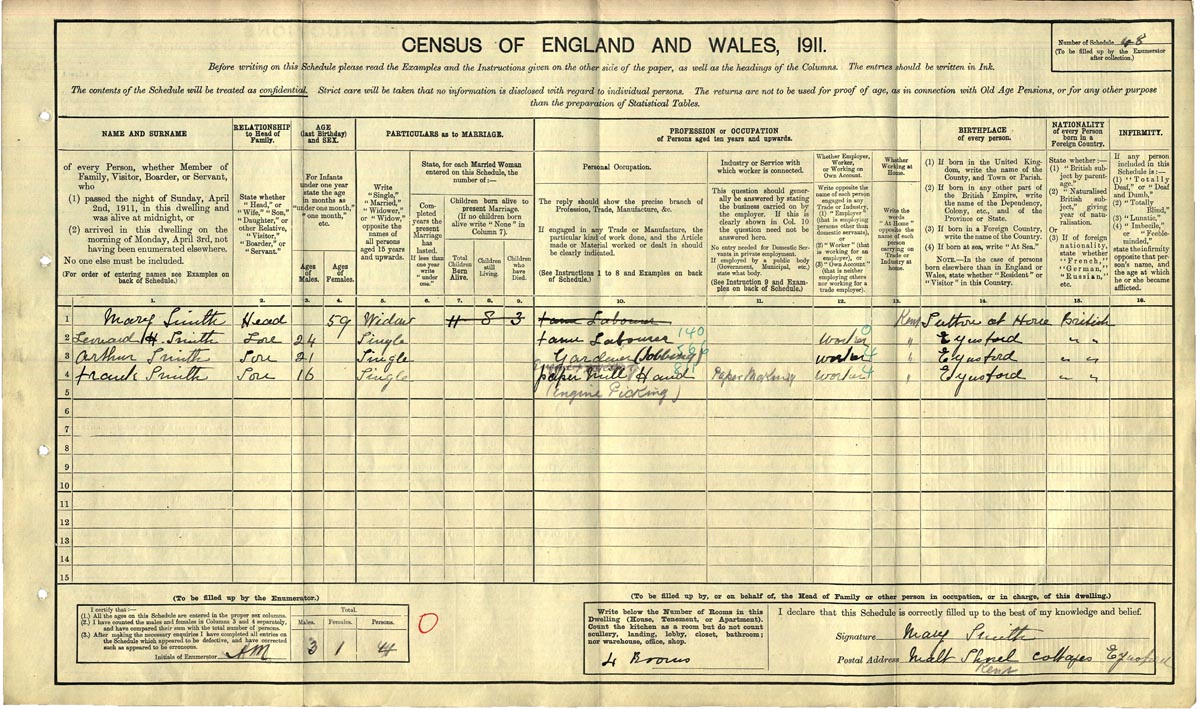 CENSUS OF ENGLAND AND WALES, 1911.
Number of Schedule 48
(To be filled up by the Enumerator
after collection.)
Before writing on this Schedule please read the Examples and the Instructions given on the other side of the paper, as well as the headings of the Columns. The entries should be written in Ink.
The contents of the Schedule will be treated as confidential. Strict care will be taken that no information is disclosed with regard to individual persons. The returns are not to be used for proof of age, as in connection with Old Age Pensions, or for any other purpose
than the preparation of Statistical Tables.
NAME AND SURNAME
of every Person, whether Member of
Family, Visitor, Boarder, or Servant,
who
(1) passed the night of Sunday, April
2nd, 1911, in this dwelling and
was alive at midnight, or
(2) arrived in this dwelling on the
morning of Monday, April 3rd, not
having been enumerated elsewhere.
No one else must be included.
(For order of entering names see Examples on
back of Schedule.)
RELATIONSHIP
to Head of
Family.
State whether
"Head," or
"Wife," "Son,"
"Daughter," or
other Relative,
"Visitor,"
"Boarder," or
"Servant."
AGE
(last Birthday)
and SEX.
For Infants
under one year
state the age
in months as
"under one month,"
"one month,"
etc.
Ages
of
Males.
Ages
of
Females.
PARTICULARS as to MARRIAGE.
Write
"Single,"
"Married,"
"Widower,"
or "Widow,"
opposite the
names of
all persons
aged 15 years
and upwards.
State, for each Married Woman
entered on this Schedule, the
number of:—
Completed
years the
present
Marriage
has
lasted.
If less than
one year
write
"under
one."
Children born alive to
present Marriage.
(If no children
born alive
write "None" in
Column 7).
Total
Children
Born
Alive.
Children
still
Living.
Children
who
have
Died.
PROFESSION or OCCUPATION
of Persons aged ten years and upwards.
Personal Occupation.
The reply should show the precise branch of
Profession, Trade, Manufacture, &c.
If engaged in any Trade or Manufacture, the
particular kind of work done, and the Article
made or Material worked or dealt in should
be clearly indicated.
(See Instructions 1 to 8 and Examples on back
of Schedule.)
Industry or Service with
which worker is connected.
This question should generally
be answered by stating
the business carried on by
the employer. If this is
clearly shown in Col. 10
the question need not be
answered here.
No entry needed for Domestic Servants
in private employment.
If employed by a public body
(Government, Municipal, etc.)
state what body.
(See Instruction 9 and Examples
on back of Schedule.)
Whether Employer,
Worker,
or Working on
Own Account.
Write opposite the
name of each person
engaged in any
Trade or Industry,
(1) "Employer"
(that is employing
persons other than
domestic servants),
or
(2) "Worker" (that
is working for an
employer), or
(3) "Own Account"
(that is neither
employing others
nor working for a
trade employer).
Whether
Working at
Home.
Write the
words
"At Home"
opposite the
name of each
person
carrying on
Trade or
Industry at
home.
BIRTHPLACE
of every person.
(1) If born in the United Kingdom,
write the name of
the County, and Town or
Parish.
(2) If born in any other part of
the British Empire, write
the name of the Dependency,
Colony, etc., and of the
Province or State.
(3) If born in a Foreign Country,
write the name of the Country.
(4) If born at sea, write "At Sea."
NOTE.—In the case of persons
born elsewhere than in England or
Wales, state whether "Resident" or
"Visitor" in this Country.
NATIONALITY
of every Person
born in a
Foreign Country.
State whether:—
(1) "British
subject by parentage."
(2) "Naturalised
British subject,"
giving
year of naturalisation.
Or
(3) If of foreign
nationality,
state whether
"French,"
"German,"
"Russian,"
etc.
INFIRMITY.
If any
person
included in
this
Schedule is:—
(1) "Totally
Deaf," or "Deaf
and Dumb,"
(2) "Totally
Blind,"
(3) "Lunatic,"
(4) "Imbecile,"
or "Feeble-minded,"
state the infirmity
opposite that person's
name, and
the age at which
he or she became
afflicted.
1. 2. 3. 4. 5. 6. 7. 8. 9. 10. 11. 12. 13. 14. 15. 16.
1 Mary Smith Head 59 Widow 11 8 3 Farm Labourer Kent Sutton at Hone British
2 Leonard H. Smith Son 24 Single Farm Labourer 140 Worker 0 " Eynsford " "
3 Arthur Smith Son 21 Single Gardener (Jobbing) Worker 4 " Eynsford " "
4 Frank Smith Son 16 Single paper Mill Hand Paper Making Worker 4 " Eynsford " "
5 (Engine Picking)
6
7
8
9
10
11
12
13
14
15
(To be filled up by the Enumerator.)
I certify that:—
(1.) All the ages on this Schedule are entered in the proper sex columns.
(2.) I have counted the males and females in Columns 3 and 4 separately,
and have compared their sum with the total number of persons.
(3.) After making the necessary enquiries I have completed all entries on
the Schedule which appeared to be defective, and have corrected
such as appeared to be erroneous.
Initials of Enumerator AM
Total.
Males. Females. Persons.
3 1 4
0
(To be filled up by, or on behalf of, the Head of Family or other person in occupation, or in charge, of this dwelling.)
Write below the Number of Rooms in this
Dwelling (House, Tenement, or Apartment).
Count the kitchen as a room but do not count
scullery, landing, lobby, closet, bathroom;
nor warehouse, office, shop.
4 Rooms
I declare that this Schedule is correctly filled up to the best of my knowledge and belief.
Signature Mary Smith
Postal Address Malt Shovel cottages Eynsford
Kent